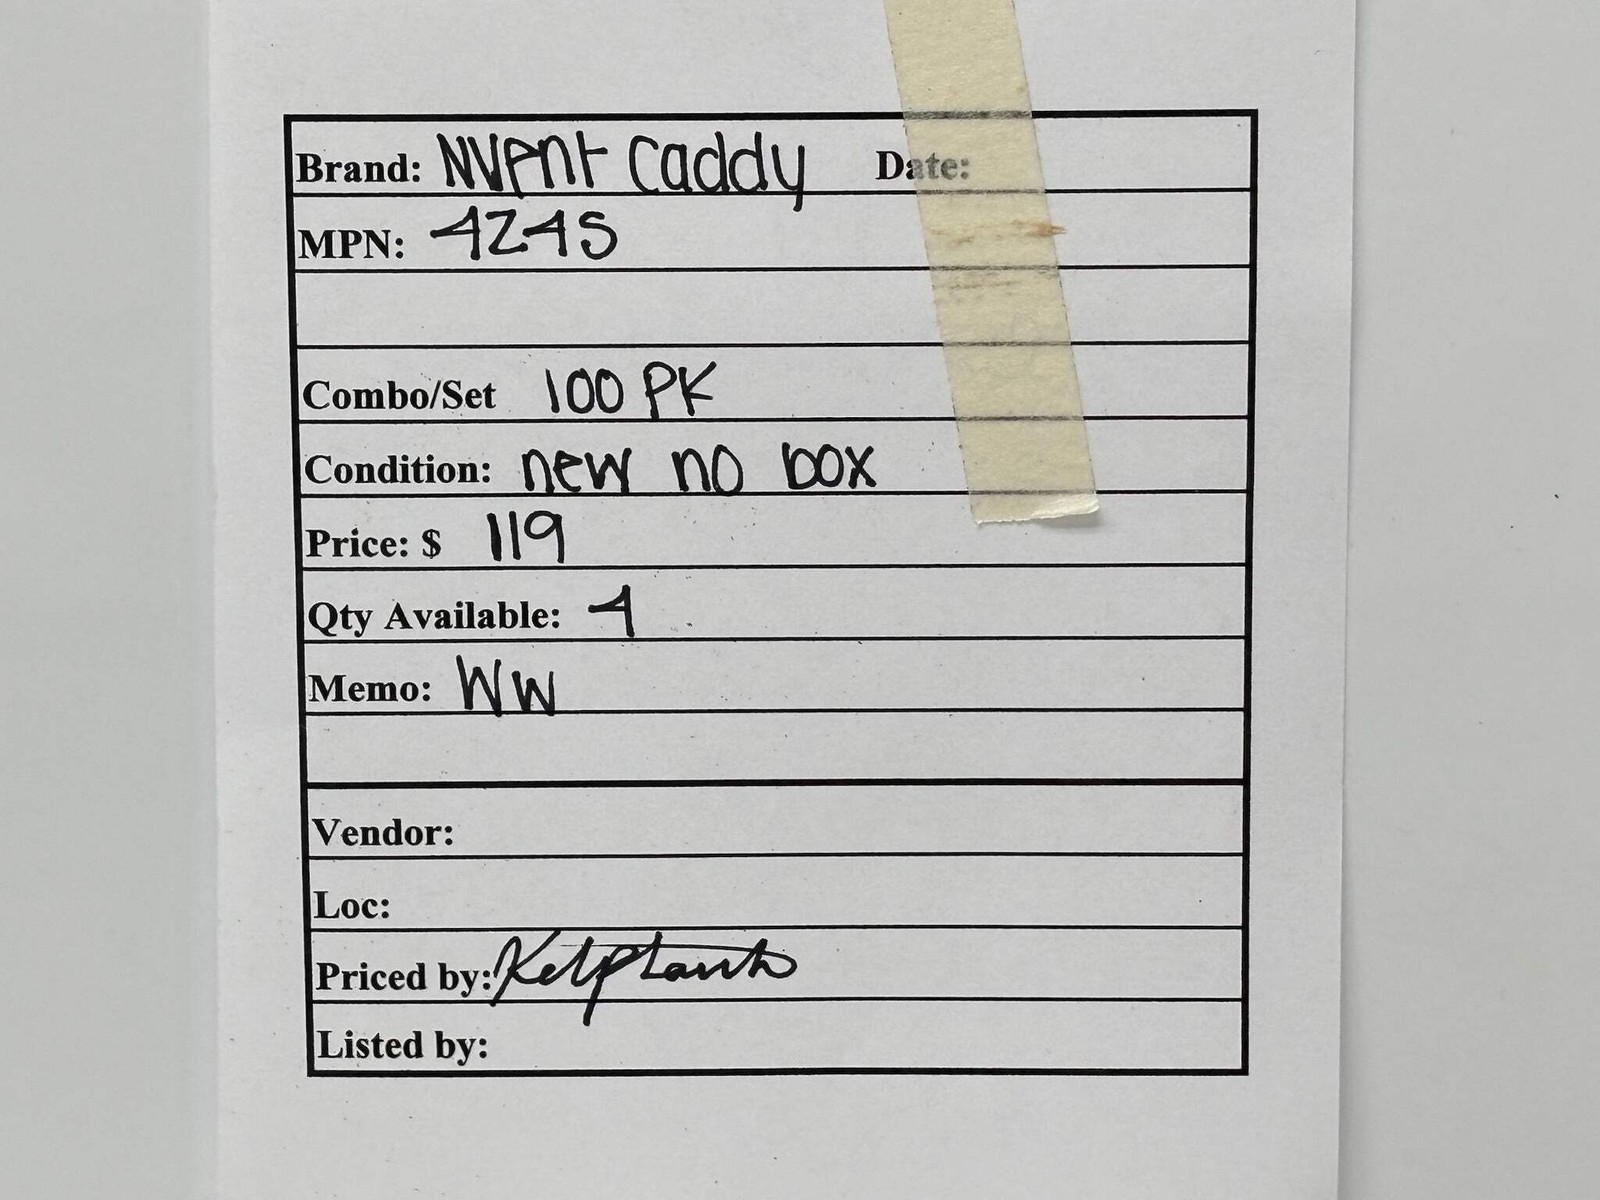 Brand: Nvent caddy Date:
MPN: 4Z4S
Combo/Set 100 PK
Condition: new no box
Price: $ 119
Qty Available: 4
Memo: WW
Vendor:
Loc:
Priced by:
Listed by: